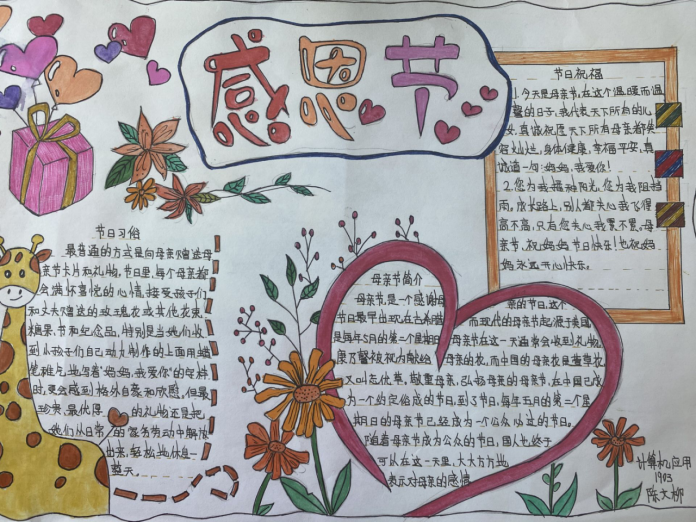 感恩节
节日祝福
1.今天是母亲节,在这个温暖而温
馨的日子,我代表天下所有的儿
女,真诚祝愿天下所有母亲都笑
容灿烂,身体健康,幸福平安,真
诚道一句:妈妈,我爱你!
2.您为我播种阳光,您为我阻挡
雨,成长路上,别人都关心我飞得
高不高,只有您关心我累不累,母
亲节,祝妈妈节日快乐!也祝妈
妈永远开心快乐。
节日习俗
最普通的方式是向母亲赠送母
亲节卡片和礼物,节日里,每个母亲都
会满怀喜悦的心情,接受孩子们
和丈夫赠送的玫瑰花或其他花束,
糖果,节和纪念品,特别是当她们收
到从孩子们自己动力制作的上面用蜡
笔稚气地写着"妈妈,我爱你"的
时,更会感到格外自豪和欣慰,但最
珍贵、最优厚的礼物还是把
她们从日常的家务劳动中解放
出来,轻松地休息一
整天。
母亲节简介
母亲节,是一个感谢母亲的节日,这个
节日最早出现在古希腊 而现代的母亲节起源于美国,
是每年5月的第二个星期日 母亲节在这一天通常会收到礼物,
康乃馨被视为献给 母亲的花,而中国的母亲花是萱草花
又叫忘忧草,敬重母亲,弘扬母亲的母亲节,在中国已成
为一个约定俗成的节日,到了节日,每年五月的第二个星
期日的母亲节已经成为一个公众以过的节日。
随着母亲节成为公众的节日,国人也终于
可以在这一天里,大大方方地
表示对母亲的感情
计算机应用
1903
陈大柳